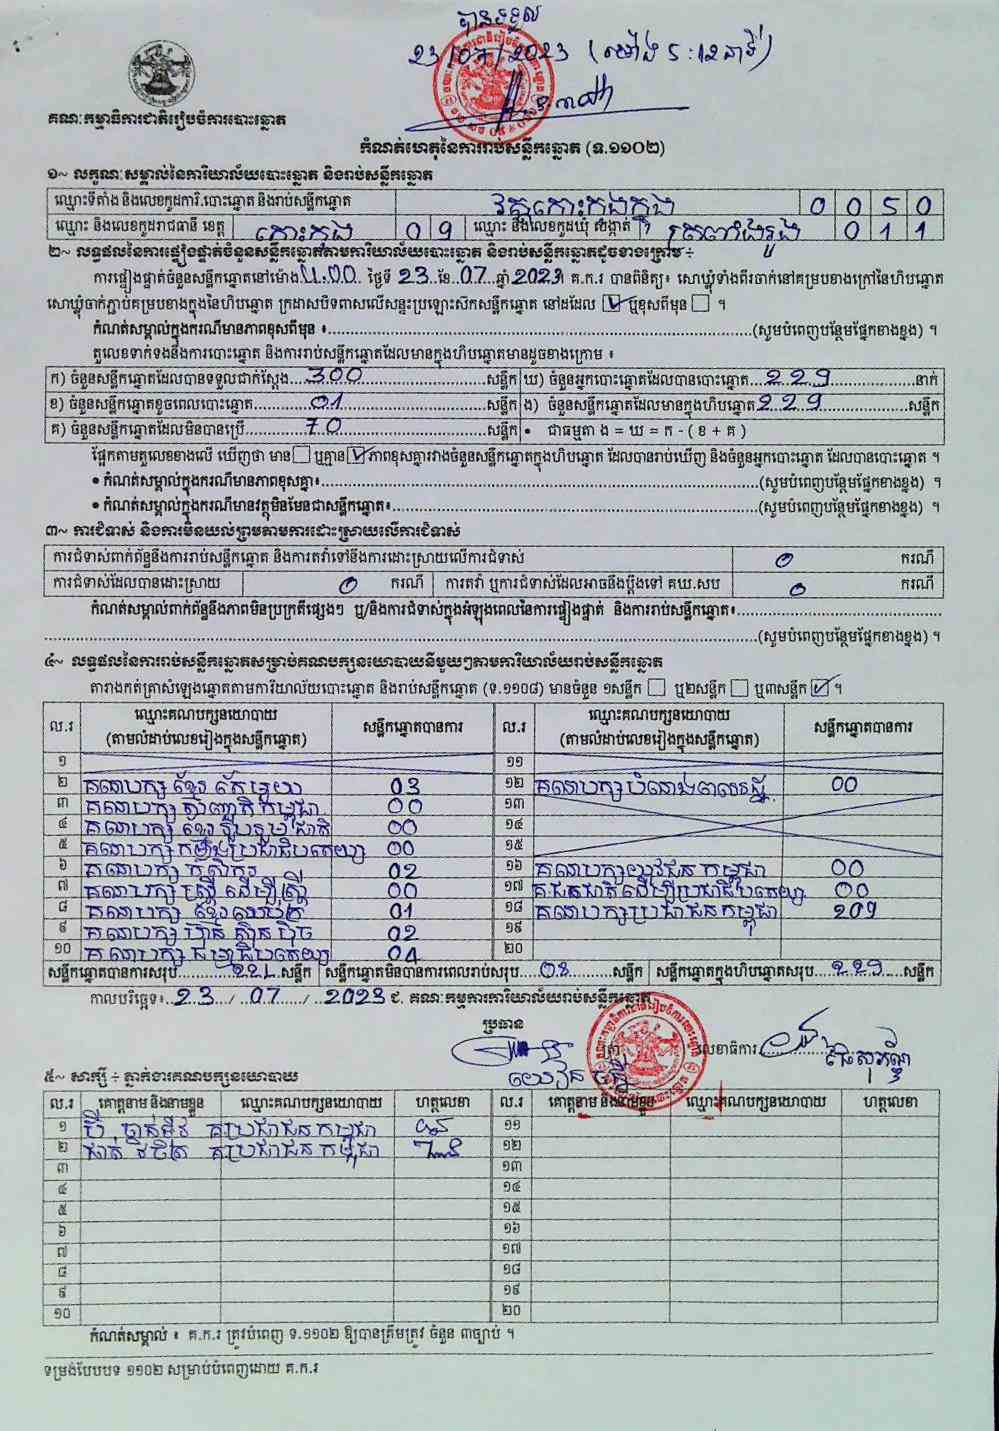 បានទទួល
23/07/2023 (ម៉ោង 5:12នាទី)
គណៈកម្មាធិការជាតិរៀបចំការបោះឆ្នោត
កំណត់ហេតុនៃការរាប់សន្លឹកឆ្នោត (ទ.១១០២)
១~ លក្ខណៈសម្គាល់នៃការិយាល័យបោះឆ្នោត និងរាប់សន្លឹកឆ្នោត
ឈ្មោះទីតាំង និងលេខកូដការិ.បោះឆ្នោត និងរាប់សន្លឹកឆ្នោត វត្តកោះកុងក្នុង 0 0 5 0
ឈ្មោះ និងលេខកូដរាជធានី ខេត្ត កោះកុង 0 9 ឈ្មោះ និងលេខកូដឃុំ សង្កាត់ ត្រពាំងរូង 0 1 1
២~ លទ្ធផលនៃការផ្ទៀងផ្ទាត់ចំនួនសន្លឹកឆ្នោតតាមការិយាល័យបោះឆ្នោត និងរាប់សន្លឹកឆ្នោតដូចខាងក្រោម ÷
ការផ្ទៀងផ្ទាត់ចំនួនសន្លឹកឆ្នោតនៅម៉ោង ថ្ងៃទី 23 ខែ 07 ឆ្នាំ 2023 គ.ក.រ បានពិនិត្យ៖ សោឃ្លុំទាំងពីរចាក់នៅគម្របខាងក្រៅនៃហិបឆ្នោត
សោឃ្លុំចាក់ភ្ជាប់គម្របខាងក្នុងនៃហិបឆ្នោត ក្រដាសបិទពាសលើសន្ទះប្រឡោះសិកសន្លឹកឆ្នោត នៅដដែល ☑ ឬខុសពីមុន ☐ ។
កំណត់សម្គាល់ក្នុងករណីមានភាពខុសពីមុន ៖ (សូមបំពេញបន្ថែមផ្នែកខាងខ្នង) ។
តួលេខទាក់ទងនឹងការបោះឆ្នោត និងការរាប់សន្លឹកឆ្នោតដែលមានក្នុងហិបឆ្នោតមានដូចខាងក្រោម ៖
ក) ចំនួនសន្លឹកឆ្នោតដែលបានទទួលជាក់ស្តែង 300 សន្លឹក ឃ) ចំនួនអ្នកបោះឆ្នោតដែលបានបោះឆ្នោត 229 នាក់
ខ) ចំនួនសន្លឹកឆ្នោតខូចពេលបោះឆ្នោត 01 សន្លឹក ង) ចំនួនសន្លឹកឆ្នោតដែលមានក្នុងហិបឆ្នោត 229 សន្លឹក
គ) ចំនួនសន្លឹកឆ្នោតដែលមិនបានប្រើ 70 សន្លឹក • ជាធម្មតា ង = ឃ = ក - ( ខ + គ )
ផ្អែកតាមតួលេខខាងលើ ឃើញថា មាន ☐ ឬគ្មាន ☑ ភាពខុសគ្នារវាងចំនួនសន្លឹកឆ្នោតក្នុងហិបឆ្នោត ដែលបានរាប់ឃើញ និងចំនួនអ្នកបោះឆ្នោត ដែលបានបោះឆ្នោត ។
• កំណត់សម្គាល់ក្នុងករណីមានភាពខុសគ្នា៖ (សូមបំពេញបន្ថែមផ្នែកខាងខ្នង) ។
• កំណត់សម្គាល់ក្នុងករណីមានវត្ថុមិនមែនជាសន្លឹកឆ្នោត៖ (សូមបំពេញបន្ថែមផ្នែកខាងខ្នង) ។
៣~ ការជំទាស់ និងការមិនយល់ព្រមតាមការដោះស្រាយលើការជំទាស់
ការជំទាស់ពាក់ព័ន្ធនឹងការរាប់សន្លឹកឆ្នោត និងការតវ៉ាទៅនឹងការដោះស្រាយលើការជំទាស់ 0 ករណី
ការជំទាស់ដែលបានដោះស្រាយ 0 ករណី ការតវ៉ា ឬការជំទាស់ដែលអាចនឹងប្តឹងទៅ គឃ.សប 0 ករណី
កំណត់សម្គាល់ពាក់ព័ន្ធនឹងភាពមិនប្រក្រតីផ្សេងៗ ឬ/និងការជំទាស់ក្នុងអំឡុងពេលនៃការផ្ទៀងផ្ទាត់ និងការរាប់សន្លឹកឆ្នោត៖
(សូមបំពេញបន្ថែមផ្នែកខាងខ្នង) ។
៤~ លទ្ធផលនៃការរាប់សន្លឹកឆ្នោតសម្រាប់គណបក្សនយោបាយនីមួយៗតាមការិយាល័យរាប់សន្លឹកឆ្នោត
តារាងកត់ត្រាសំឡេងឆ្នោតតាមការិយាល័យបោះឆ្នោត និងរាប់សន្លឹកឆ្នោត (ទ.១១០៨) មានចំនួន ១សន្លឹក ☐ ឬ២សន្លឹក ☐ ឬ៣សន្លឹក ☑ ។
ល.រ ឈ្មោះគណបក្សនយោបាយ (តាមលំដាប់លេខរៀងក្នុងសន្លឹកឆ្នោត) សន្លឹកឆ្នោតបានការ ល.រ ឈ្មោះគណបក្សនយោបាយ (តាមលំដាប់លេខរៀងក្នុងសន្លឹកឆ្នោត) សន្លឹកឆ្នោតបានការ
១ ១១
២ គណបក្ស ខ្មែរ តែមួយ 03 ១២ គណបក្ស បំរើជាតិ 00
៣ គណបក្ស កម្ពុជា 00 ១៣
៤ គណបក្ស ខ្មែរ រួបរួមជាតិ 00 ១៤
៥ គណបក្ស កម្លាំងប្រជាធិបតេយ្យ 00 ១៥
៦ គណបក្ស កសិករ 02 ១៦ គណបក្សយុវជន កម្ពុជា 00
៧ គណបក្ស ស្ត្រី ដើម្បីស្ត្រី 00 ១៧ គ.ជនជាតិ ដើម្បីប្រជាធិបតេយ្យ 00
៨ គណបក្ស ខ្មែរ 01 ១៨ គណបក្សប្រជាជន កម្ពុជា 209
៩ គណបក្ស ហ៊្វុន ស៊ិន ប៉ិច 02 ១៩
១០ គណបក្ស ប្រជាធិបតេយ្យ 04 ២០
សន្លឹកឆ្នោតបានការសរុប 221 សន្លឹក សន្លឹកឆ្នោតមិនបានការពេលរាប់សរុប 08 សន្លឹក សន្លឹកឆ្នោតក្នុងហិបឆ្នោតសរុប 229 សន្លឹក
កាលបរិច្ឆេទ៖ 23 / 07 / 2023 ជ. គណៈកម្មការការិយាល័យរាប់សន្លឹកឆ្នោត
ប្រធាន
លេខាធិការ
៥~ សាក្សី ÷ ភ្នាក់ងារគណបក្សនយោបាយ
ល.រ គោត្តនាម និងនាមខ្លួន ឈ្មោះគណបក្សនយោបាយ ហត្ថលេខា ល.រ គោត្តនាម និងនាមខ្លួន ឈ្មោះគណបក្សនយោបាយ ហត្ថលេខា
១ គ ប្រជាជន កម្ពុជា ១១
២ គ ប្រជាជន កម្ពុជា ១២
៣ ១៣
៤ ១៤
៥ ១៥
៦ ១៦
៧ ១៧
៨ ១៨
៩ ១៩
១០ ២០
កំណត់សម្គាល់ ៖ គ.ក.រ ត្រូវបំពេញ ទ.១១០២ ឱ្យបានត្រឹមត្រូវ ចំនួន ៣ច្បាប់ ។
ទម្រង់បែបបទ ១១០២ សម្រាប់បំពេញដោយ គ.ក.រ